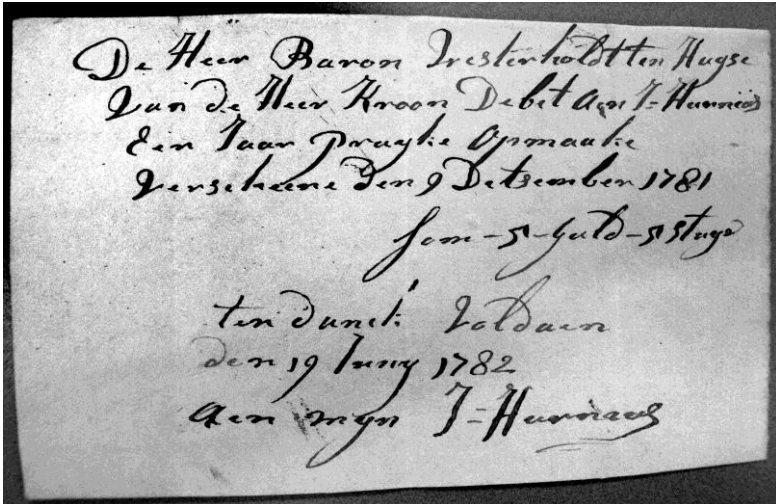 De Heer Baron Westerholdt ten Huyse
Van de Heer Kroon Debet aen J= Harneas
Een Jaar pruyke Opmaake
Verscheene Den 9 Detsember 1781
som - 5 - guld - 5 stuyv
ten danck Voldaen
den 19 Juny 1782
aen myn J= Harneas